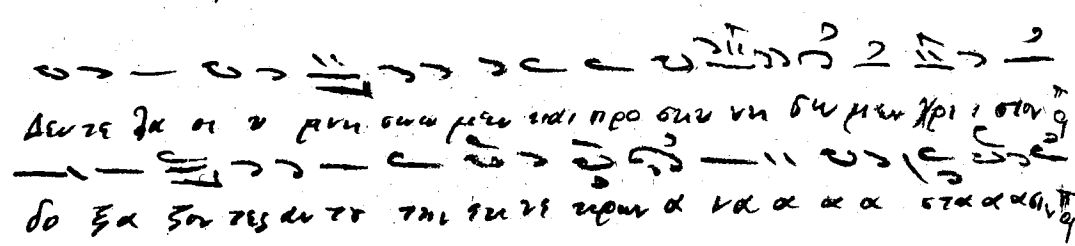 Δευτε λα οι υ μνη σωω μεν και προ σκυ νη σω μεν Χρι ι στον πq
δο ξα ζον τες αυ του την εκ νε κρων α να α α α στα α α σιν πq